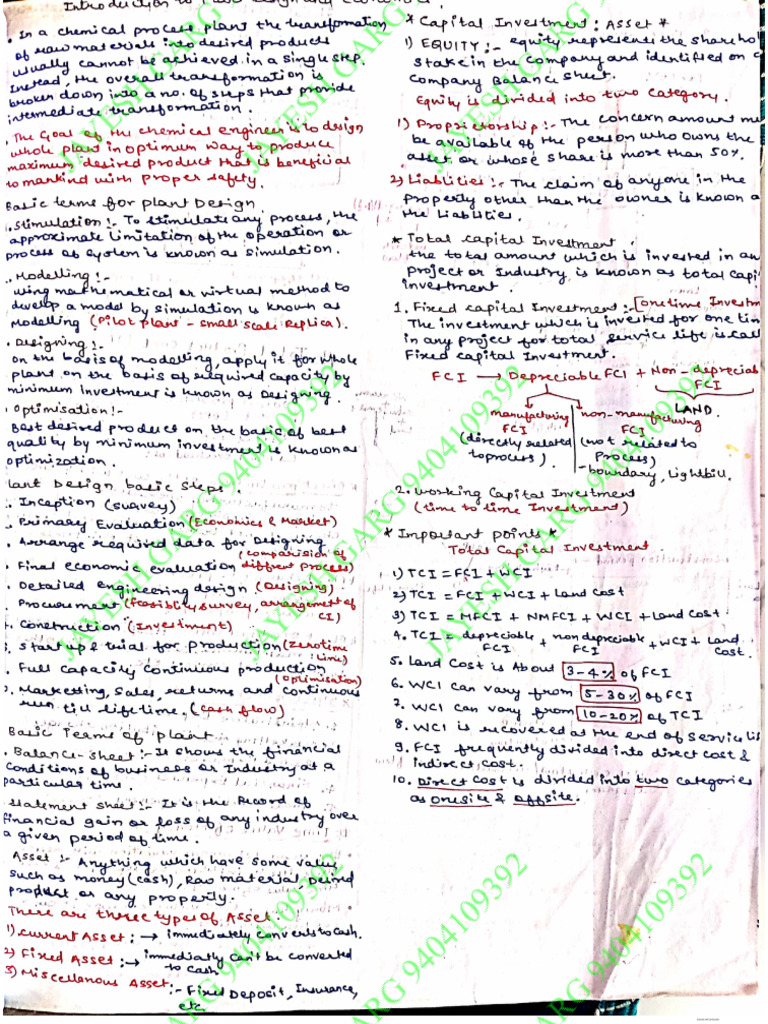 Introduction to Plant Design and Economics.
. In a chemical process plant the transformation
of raw materials into desired products
usually cannot be achieved in a single step.
Instead, the overall transformation is
broken down into a no. of steps that provide
intermediate transformation.
. The Goal of the chemical engineer is to design
whole plant in optimum way to produce
maximum desired product that is beneficial
to mankind with proper safety.
Basic terms for plant Design
. Stimulation :- To stimulate any process, the
approximate limitation of the operation or
process of system is known as simulation.
. Modelling :-
using mathematical or virtual method to
develop a model by simulation is known as
modelling (Pilot plant - small scale Replica).
. Designing :-
on the basis of modelling, apply it for whole
plant on the basis of required capacity by
minimum investment is known as Designing.
. Optimisation :-
Best desired product on the basic of best
quality by minimum investment is known as
optimization.
lant Design basic Steps.
. Inception (survey)
. Primary Evaluation (Economics & Market)
. Arrange required data for Designing
. Final economic evaluation (comparision of different process)
. Detailed engineering design (Designing)
. Procurement (feasiblity survey, arrangement of CI)
. Construction (Investment)
. Start up & trial for production (zero time line)
. Full capacity continuous production (optimisation)
. Marketting, sales, returns and continuous
run till life time. (cash flow)
Basic Terms of plant
. Balance-sheet :- It shows the financial
conditions of business or Industry at a
particular time.
Statement sheet :- It is the Record of
financial gain or loss of any industry over
a given period of time.
Asset :- Anything which have some value
such as money (cash), Raw material, Desired
product or any property.
There are three types of Asset.
1) Current Asset : → immediately converts to cash.
2) Fixed Asset : → immediatly can't be converted
to cash
3) Miscellanous Asset :- Fixed Deposit, Insurance,
etc
* Capital Investment : Asset *
1) EQUITY :- equity represents the shareho
stake in the company and identified on
Company Balance sheet.
Equity is divided into two Category.
1) Proprietorship :- The concern amount mu
be available of the person who owns the
asset or whose share is more than 50%.
2) Liablities :- The claim of anyone in the
property other than the owner is known a
the Liablities.
* Total capital Investment.
the total amount which is invested in an
project or Industry is known as total capi
investment.
1. Fixed capital Investment :- [one time Investm
The investment which is invested for one tim
in any project for total service life is call
Fixed capital Investment.
FCI → Depreciable FCI + Non-depreciabl
FCI
LAND.
manufacturing FCI
(directly related to process).
non-manufacturing FCI
(not related to Process)
- boundary, Light bill.
2. Working Capital Investment
(time to time Investment)
* Important points *
Total Capital Investment
1) TCI = FCI + WCI
2) TCI = FCI + WCI + Land Cost
3) TCI = MFCI + NMFCI + WCI + Land Cost
4. TCI = depreciable FCI + non depreciable FCI + WCI + Land cost.
5. Land Cost is About 3-4% of FCI
6. WCI can vary from 5-30% of FCI
7. WCI can vary from 10-20% of TCI
8. WCI is recovered at the end of Service lif
9. FCI frequently divided into direct cost &
indirect cost.
10. Direct cost is divided into two categories
as onesite & offsite.
JAYESH GARG 9404109392
JAYESH GARG 9404109392
JAYESH GARG 9404109392
GARG 9404109392
GARG 9404109392